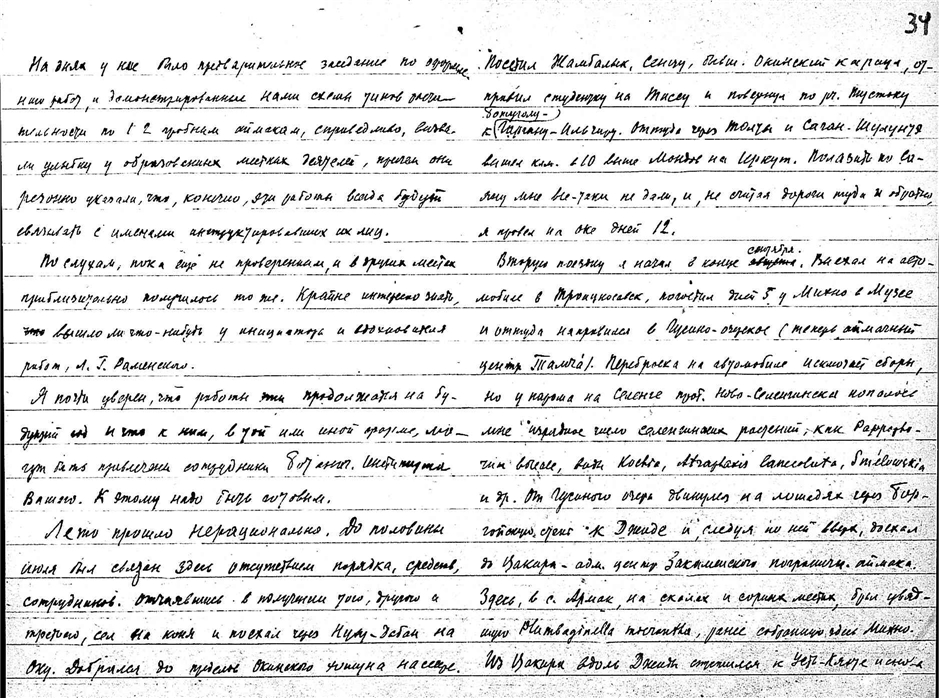 34
На днях у нас было предварительное заседание по оформле-
нию работ, и демонстрированные нами схемы чинов расти-
тельности по 1-2 пробным аймакам, справедливо, вызва-
ли улыбку у образованных местных деятелей, причем они
резонно указали, что, конечно, эти работы всегда будут
связывать с именами инструктировавших их лиц.
По слухам, пока еще не проверенным, и в других местах
приблизительно получилось то же. Крайне интересно знать,
вышло ли что-нибудь у инициатора и вдохновителя
работ, Л. Г. Раменского.
Я почти уверен, что работы эти продолжатся на бу-
дущий год и что к ним, в той или иной форме, мо-
гут быть привлечены сотрудники Ботанич. Института
Вашего. К этому надо быть готовым.
Лето прошло нерационально. До половины
июля был связан здесь отсутствием порядка, средств,
сотрудников. Отчаявшись в получении того, другого и
третьего, сел на коня и поехал через Нуху-Дабан на
Оку. Добрался до пределов Окинского хошуна на севере.
Посетил Жамбалык, Сенцу, бывш. Окинский караул, от-
правил студентку на Тиссу и повернул по рч. Тустоку
к Гаргану-Ильчиру. Оттуда через Толты и Саган-Шулунты
вышел клм. в 10 выше Мондов на Иркут. Полазить по Са-
яну мне все-таки не дали, и, не считая дороги туда и обратно,
я провел на Оке дней 12.
Вторую поездку я начал в конце сентября. Выехал на авто-
мобиле в Троицкосавск, погостил дней 5 у Михно в Музее
и оттуда направился в Гусино-озерское (теперь аймачный
центр Тамча). Переброска на автомобиле исключает сборы,
но у парома на Селенге прот. Ново-Селенгинска попалось
мне изрядное число селенгинских растений, как
вида Kochia, Atraphaxis lanceolata, Stelleropsis
и др. От Гусиного озера двинулся на лошадях через Бор-
гойскую степь к Джиде и, следуя по ней вверх, доехал
до Цакира - адм. центр Закаменского погранич. аймака.
Здесь, в с. Армак, на скалах и сорных местах, брал увяд-
шую Plumbaginella micrantha, ранее собранную здесь Михно.
Из Цакира вдоль Джиды спустился к Усть-Кяхте и снова